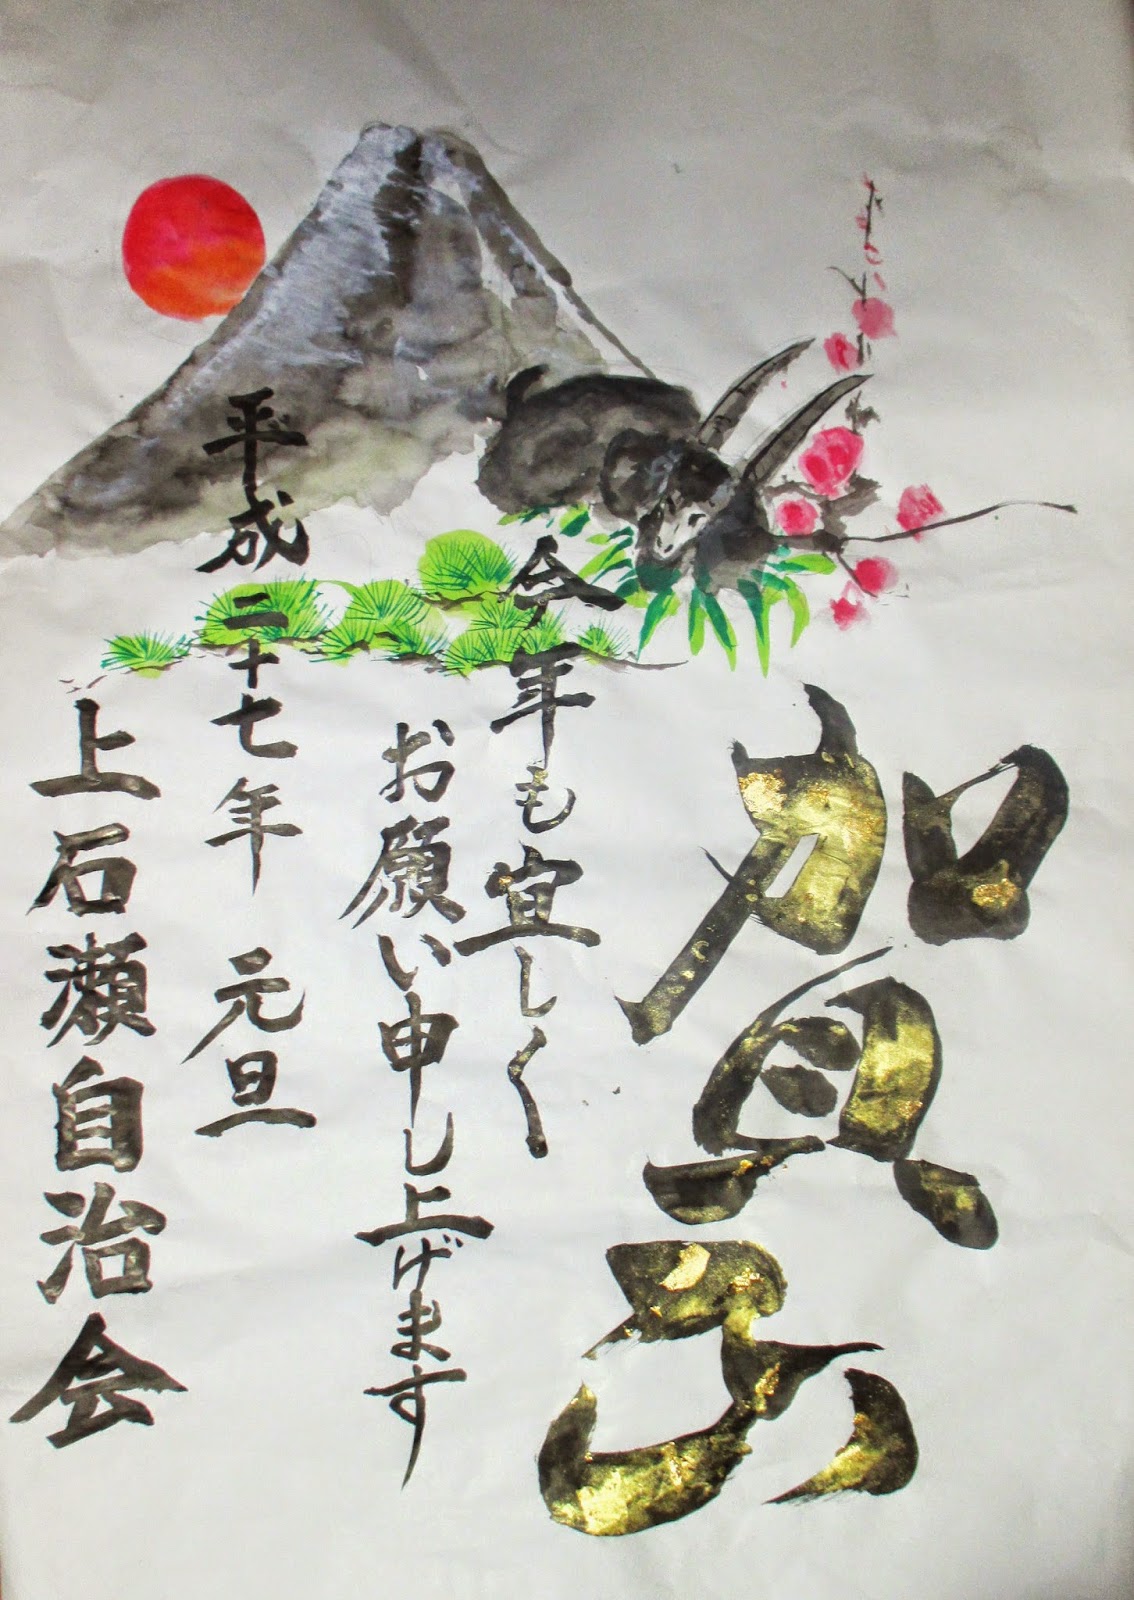 賀正
今年も宜しく
お願い申し上げます
平成二十七年 元旦
上石瀬自治会